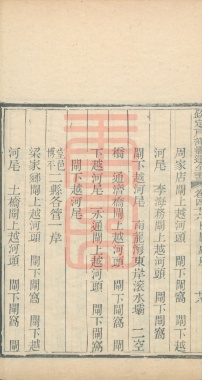 周家店閘上越河頭　閘下閘窩　閘下越
河尾　李海務閘上越河頭　閘下閘窩
閘下越河尾　南龍灣東岸滾水壩　二空
橋　通濟橋閘上越河頭　閘下閘窩　閘
下越河尾　永通閘上越河頭　閘下閘窩
閘下越河尾
堂邑博平二縣各管一岸
梁家鄉閘上越河頭　閘下閘窩　閘下越
河尾　土橋閘上越河頭　閘下閘窩　閘